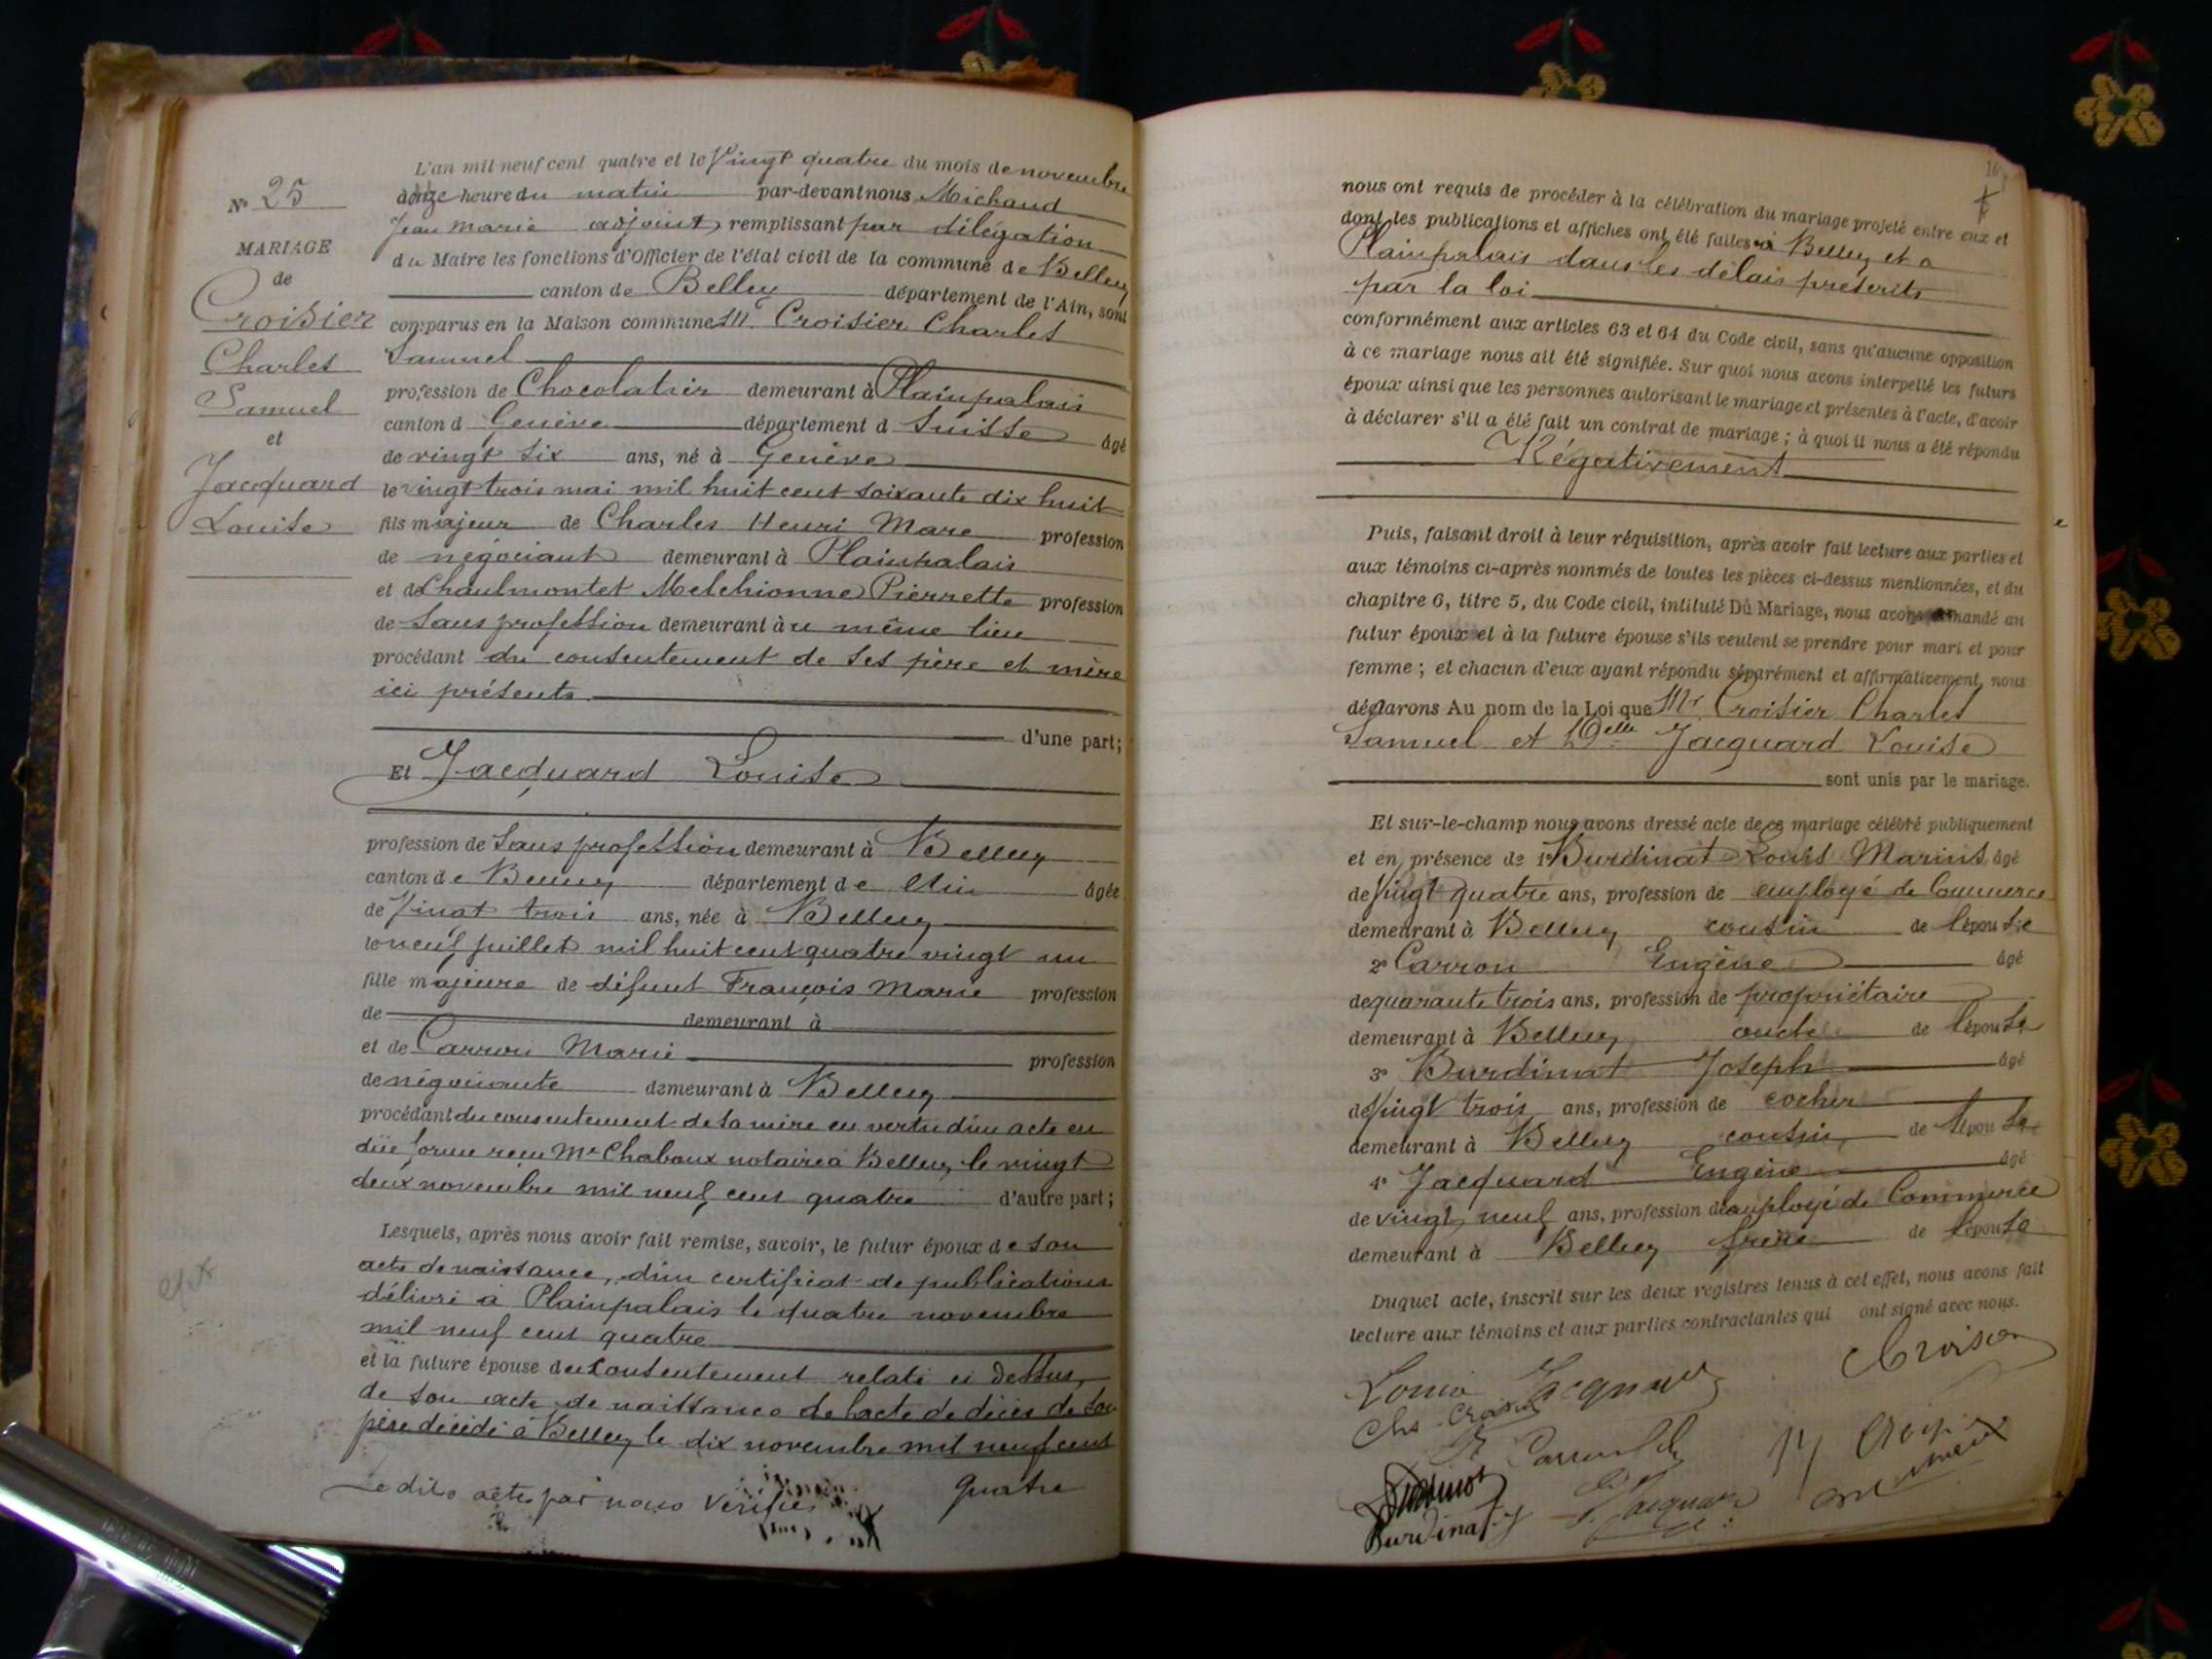 N° 25
MARIAGE
de
Croisier
Charles
Samuel
et
Jacquard
Louise
L'an mil neuf cent quatre et le Vingt quatre du mois de novembre
à onze heure du matin par-devant nous Michaud
Jean Marie adjoint remplissant par délégation
du Maire les fonctions d'Officier de l'état civil de la commune de Belley
canton de Belley département de l'Ain, sont
comparus en la Maison commune Mr Croisier Charles
Samuel
profession de Chocolatier demeurant à Plainpalais
canton d Genève département d Suisse âgé
de vingt six ans, né à Genève
le vingt trois mai mil huit cent soixante dix huit
fils majeur de Charles Henri Marc profession
de négociant demeurant à Plainpalais
et de Chaulmontet Melchionne Pierrette profession
de Sans profession demeurant à u même lieu
procédant du consentement de ses père et mère
ici présents
d'une part;
Et Jacquard Louise
profession de Sans profession demeurant à Belley
canton de Belley département de Ain âgée
de Vingt trois ans, née à Belley
le neuf juillet mil huit cent quatre vingt un
fille majeure de défunt François Marie profession
de demeurant à
et de Carron Marie profession
de négociante demeurant à Belley
procédant du consentement de sa mère en vertu d'un acte en
düe forme reçu Me Chaboux notaire à Belley le vingt
deux novembre mil neuf cent quatre d'autre part;
Lesquels, après nous avoir fait remise, savoir, le futur époux de son
acte de naissance, d'un certificat de publications
délivré à Plainpalais le quatre novembre
mil neuf cent quatre
et la future épouse du Consentement relaté ci dessus,
de son acte de naissance de l'acte de décès de son
père décédé à Belley le dix novembre mil neuf cent
quatre
Le dits actes par nous vérifiés
nous ont requis de procéder à la célébration du mariage projeté entre eux et
dont les publications et affiches ont été faites à Belley et a
Plainpalais dans les délais prescrits
par la loi
conformément aux articles 63 et 64 du Code civil, sans qu'aucune opposition
à ce mariage nous ait été signifiée. Sur quoi nous avons interpellé les futurs
époux ainsi que les personnes autorisant le mariage et présentes à l'acte, d'avoir
à déclarer s'il a été fait un contrat de mariage; à quoi il nous a été répondu
Négativement
Puis, faisant droit à leur réquisition, après avoir fait lecture aux parties et
aux témoins ci-après nommés de toutes les pièces ci-dessus mentionnées, et du
chapitre 6, titre 5, du Code civil, intitulé Du Mariage, nous avons demandé au
futur époux et à la future épouse s'ils veulent se prendre pour mari et pour
femme; et chacun d'eux ayant répondu séparément et affirmativement, nous
déclarons Au nom de la Loi que Mr Croisier Charles
Samuel et Delle Jacquard Louise
sont unis par le mariage.
Et sur-le-champ nous avons dressé acte de ce mariage célébré publiquement
et en présence de 1° Burdinat Louis Marius âgé
de Vingt quatre ans, profession de employé de Commerce
demeurant à Belley cousin de l'épouse
2° Carron Eugène âgé
de quarante trois ans, profession de propriétaire
demeurant à Belley oncle de l'épouse
3° Burdinat Joseph âgé
de Vingt trois ans, profession de cocher
demeurant à Belley cousin de l'épouse
4° Jacquard Eugène âgé
de vingt neuf ans, profession d'employé de Commerce
demeurant à Belley frère de l'épouse
Duquel acte, inscrit sur les deux registres tenus à cet effet, nous avons fait
lecture aux témoins et aux parties contractantes qui ont signé avec nous.
Croisier
Louise Jacquard
Chs Croisier
Burdinat J
Jacquard